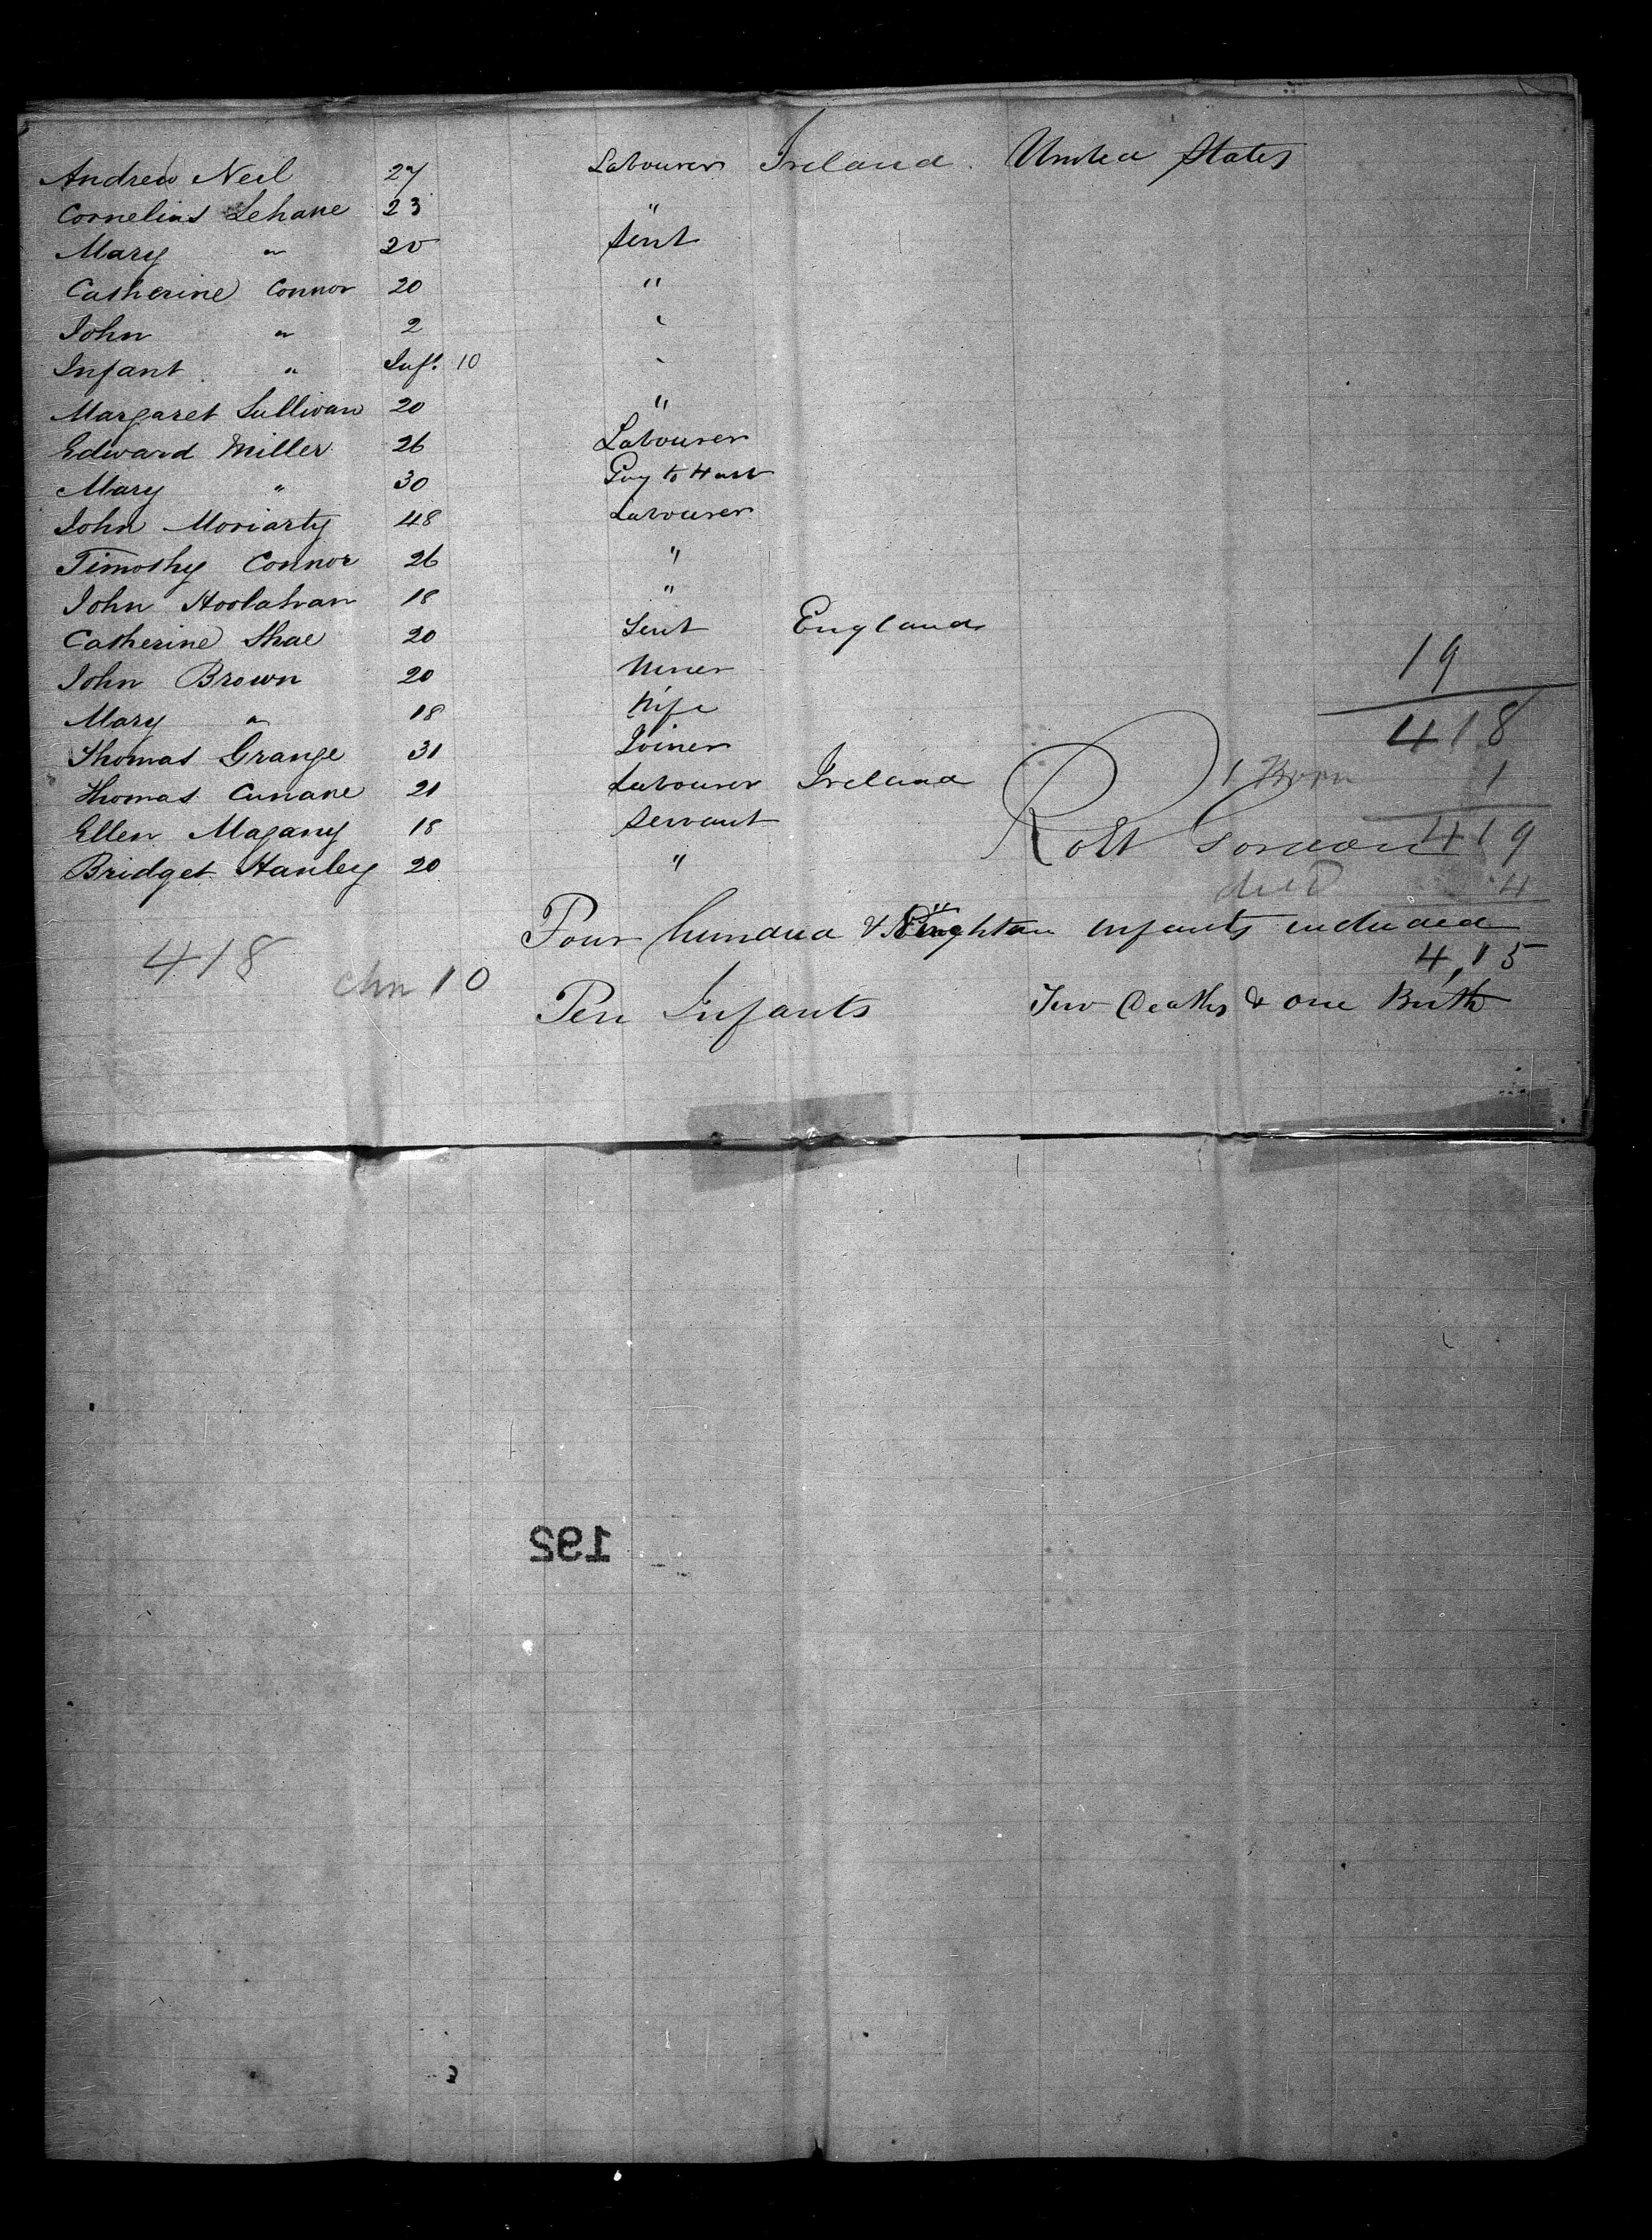 Andrew Neil 27 Labourer Ireland. United States
Cornelius Lehane 23 "
Mary " 20 Sent
Catherine Connor 20 "
John " 2 "
Infant " Inft. 10 "
Margaret Sullivan 20 "
Edward Miller 26 Labourer
Mary " 30
John Moriarty 48 Labourer
Timothy Connor 26 "
John Hoolahan 18 "
Catherine Shae 20 Sent England
John Brown 20 Miner 19
Mary " 18 Wife 418
Thomas Grange 31 Joiner
1 Born 1
Thomas Cunane 21 Labourer Ireland
Ellen Magany 18 Servant
Robt Gordon 419
Bridget Hanley 20 "
died 4
Four hundred & Eighteen Infants included
418 4,15
chn 10
Ten Infants Two Deaths & one Birth
192